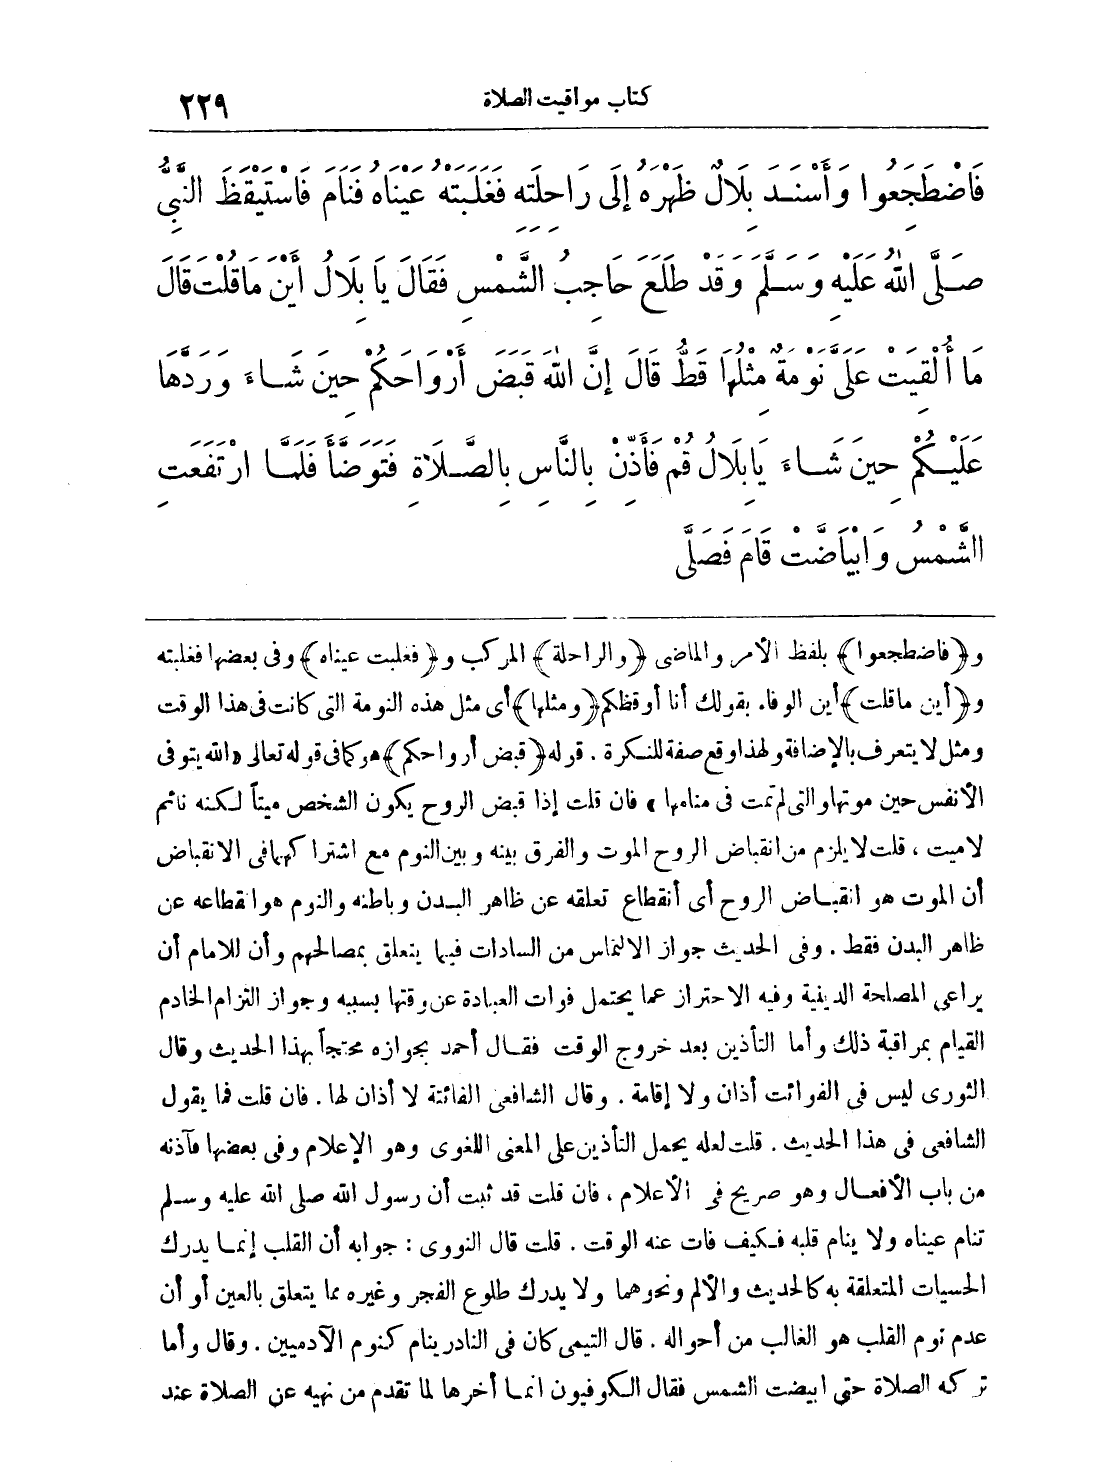 كتاب مواقيت الصلاة
٢٢٩
فَاضْطَجَعُوا وَأَسْنَدَ بِلَالٌ ظَهْرَهُ إِلَى رَاحِلَتِهِ فَغَلَبَتْهُ عَيْنَاهُ فَنَامَ فَاسْتَيْقَظَ النَّبِيُّ
صَلَّى اللهُ عَلَيْهِ وَسَلَّمَ وَقَدْ طَلَعَ حَاجِبُ الشَّمْسِ فَقَالَ يَا بِلَالُ أَيْنَ مَا قُلْتَ قَالَ
مَا أُلْقِيَتْ عَلَىَّ نَوْمَةٌ مِثْلُهَا قَطُّ قَالَ إِنَّ اللهَ قَبَضَ أَرْوَاحَكُمْ حِينَ شَاءَ وَرَدَّهَا
عَلَيْكُمْ حِينَ شَاءَ يَابِلَالُ قُمْ فَأَذِّنْ بِالنَّاسِ بِالصَّلَاةِ فَتَوَضَّأَ فَلَمَّا ارْتَفَعَتِ
الشَّمْسُ وَابْيَاضَّتْ قَامَ فَصَلَّى
و﴿فاضطجعوا﴾ بلفظ الأمر والماضى ﴿والراحلة﴾ المركب و﴿فغلبت عيناه﴾ وفى بعضها فغلبته
و﴿أين ماقلت﴾ أين الوفاء بقولك أنا أوقظكم ﴿ومثلها﴾ أى مثل هذه النومة التى كانت فى هذا الوقت
ومثل لا يتعرف بالإضافة ولهذا وقع صفة للنكرة . قوله ﴿قبض أرواحكم﴾ هو كما فى قوله تعالى «الله يتوفى
الأنفس حين موتها والتى لم تمت فى منامها» فان قلت إذا قبض الروح يكون الشخص ميتاً لكنه نائم
لاميت ، قلت لا يلزم من انقباض الروح الموت والفرق بينه وبين النوم مع اشتراكهما فى الانقباض
أن الموت هو انقباض الروح أى أنقطاع تعلقه عن ظاهر البدن وباطنه والنوم هو انقطاعه عن
ظاهر البدن فقط . وفى الحديث جواز الالتماس من السادات فيما يتعلق بمصالحهم وأن للامام أن
يراعى المصلحة الدينية وفيه الاحتراز عما يحتمل فوات العبادة عن وقتها بسببه وجواز التزام الخادم
القيام بمراقبة ذلك وأما التأذين بعد خروج الوقت فقال أحمد بجوازه محتجاً بهذا الحديث وقال
الثورى ليس فى الفوائت أذان ولا إقامة . وقال الشافعى الفائتة لا أذان لها . فان قلت فما يقول
الشافعى فى هذا الحديث . قلت لعله يحمل التأذين على المعنى اللغوى وهو الإعلام وفى بعضها فآذنه
من باب الأفعال وهو صريح فى الأعلام ، فان قلت قد ثبت أن رسول الله صلى الله عليه وسلم
تنام عيناه ولا ينام قلبه فكيف فات عنه الوقت . قلت قال النووى : جوابه أن القلب إنما يدرك
الحسيات المتعلقة به كالحديث والألم ونحوهما ولا يدرك طلوع الفجر وغيره مما يتعلق بالعين أو أن
عدم نوم القلب هو الغالب من أحواله . قال التيمى كان فى النادر ينام كنوم الآدميين . وقال وأما
تركه الصلاة حتى ابيضت الشمس فقال الكوفيون انما أخرها لما تقدم من نهيه عن الصلاة عند